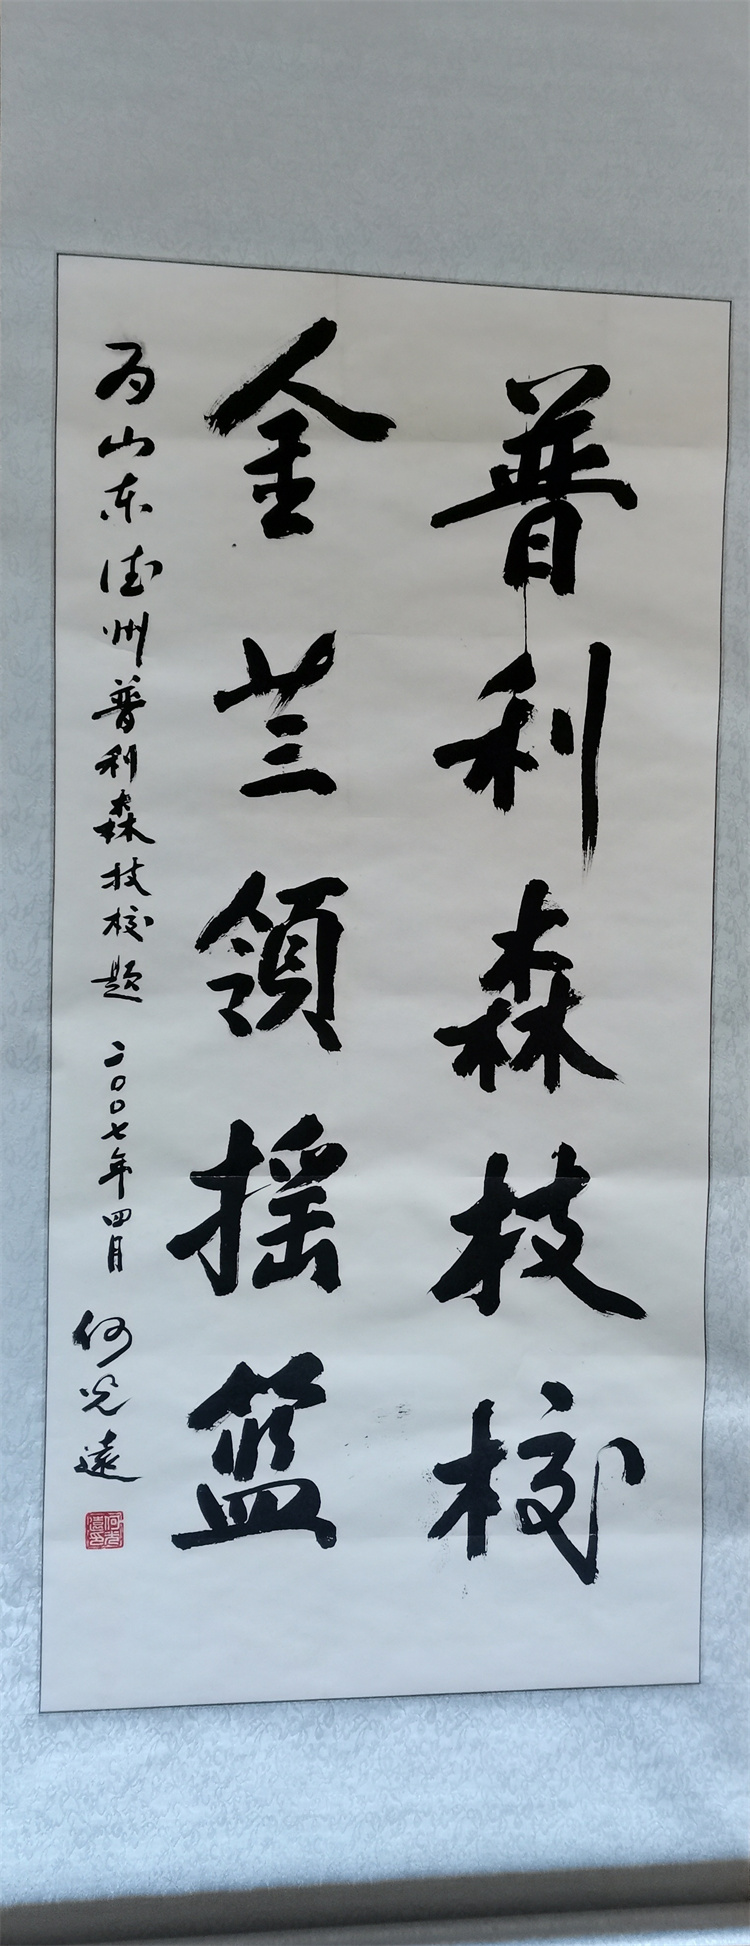 普利森技校
金兰领摇篮
为山东德州普利森技校题 二〇〇七年四月 何光遠